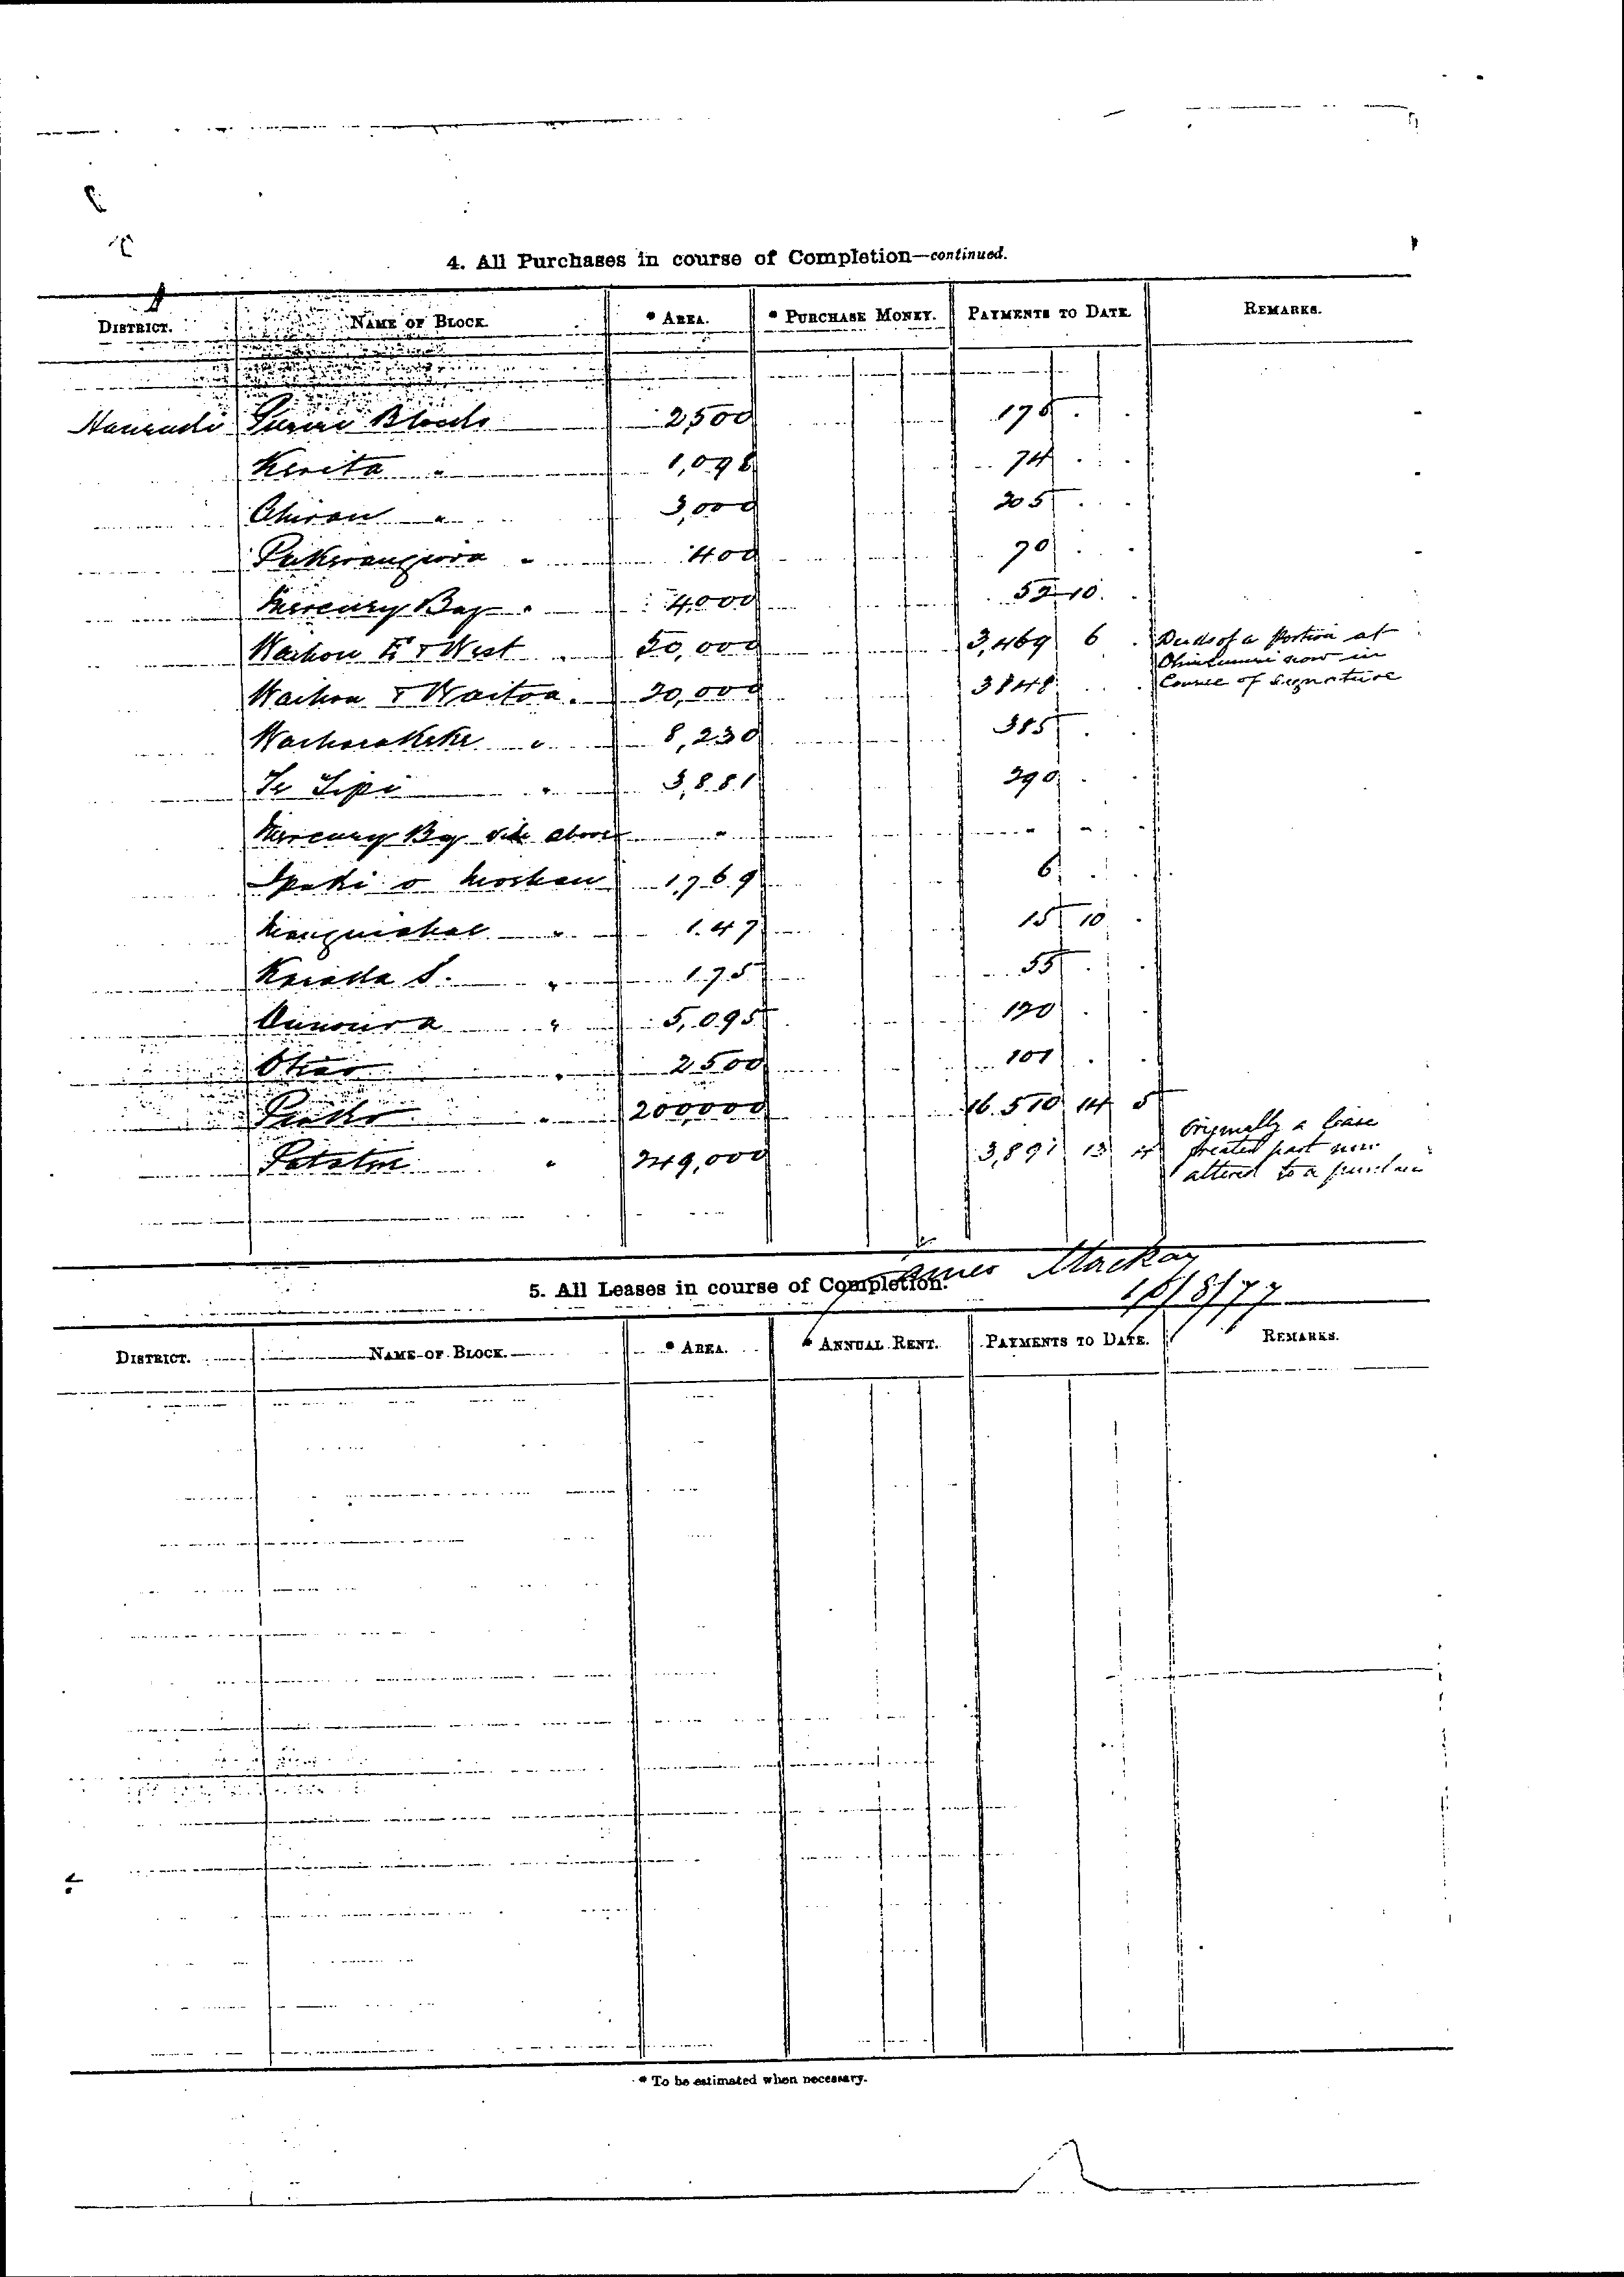 4. All Purchases in course of Completion—continued.
DISTRICT. NAME OF BLOCK. * AREA. * PURCHASE MONEY. PAYMENTS TO DATE. REMARKS.
Hauraki Puriri Block 2500
Kirita " 1,098 74
Ahirau " 3,000 205
Pukewangiora " 400 70
Mercury Bay " 4000 52 10
Waihou E & West " 50,000 3,469 6 Deeds of a Portion at
Ohinemuri now in
Course of Signature
Waihou & Waitoa " 20,000 3848
Waiharakeke " 8,230 385
Te Tipi " 3,881 290
Mercury Bay vide above " " "
1,769 6
" 147 15 10
" 175 55
" 5,095 120
Otiao " 2500 101
Piako " 200000 16.510 14 5
Patatere " 249,000 3,891 13 4 Originally a lease
greater part now
altered to a purchase
James Mackay
5. All Leases in course of Completion.
16/8/77
DISTRICT. NAME OF BLOCK. * AREA. * ANNUAL RENT. PAYMENTS TO DATE. REMARKS.
* To be estimated when necessary.